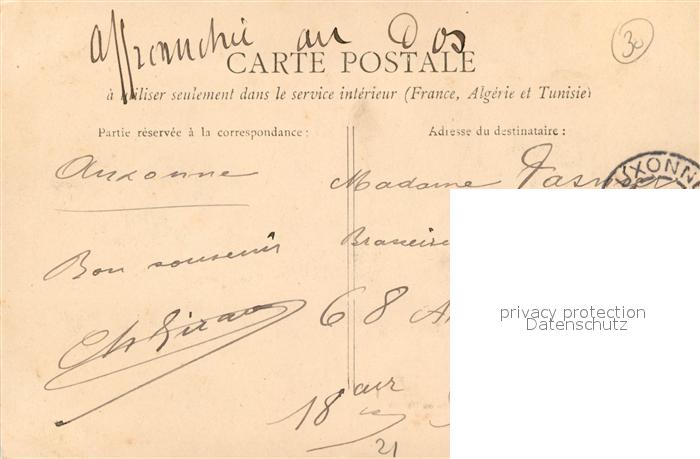 affranchie au Dos
30
CARTE POSTALE
à utiliser seulement dans le service intérieur (France, Algérie et Tunisie)
Partie réservée à la correspondance :
Adresse du destinataire :
Auxonne
Bon souvenir
Madame
68
18
21
UXONN
privacy protection
Datenschutz